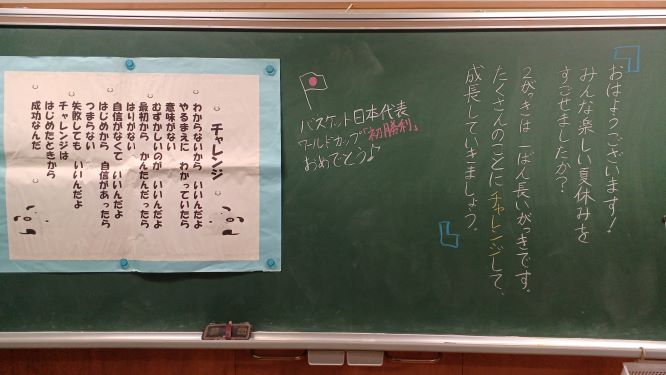 おはようございます!
みんな楽しい夏休みを
すごせましたか?
2がっきは一ばん長いがっきです。
たくさんのことにチャレンジして、
成長していきましょう。
バスケット日本代表
ワールドカップ「初勝利」
おめでとう♪
チャレンジ
わからないから いいんだよ
やるまえに わかっていたら
意味がない
むずかしいのが いいんだよ
最初から かんたんだったら
はりがない
自信がなくて いいんだよ
はじめから 自信があったら
つまらない
失敗しても いいんだよ
チャレンジは
はじめたときから
成功なんだ